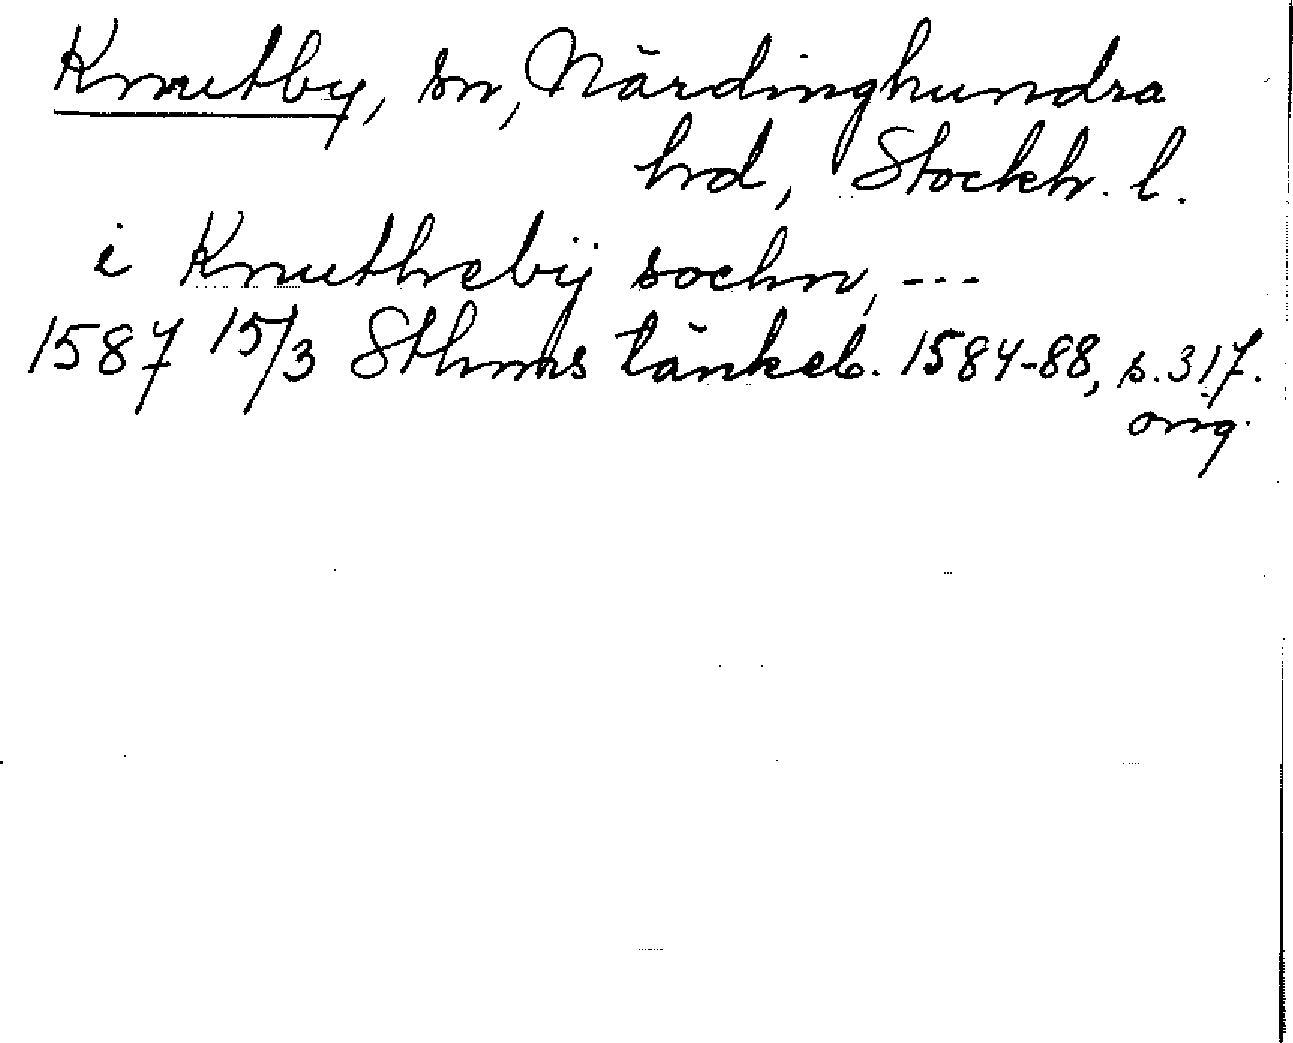 Knutby, sn, Närdinghundra
hrd, Stockh. l.
i Knuthebij sochn, ---
1587 15/3 Sthms tänkeb. 1584-88, s. 317.
orig.